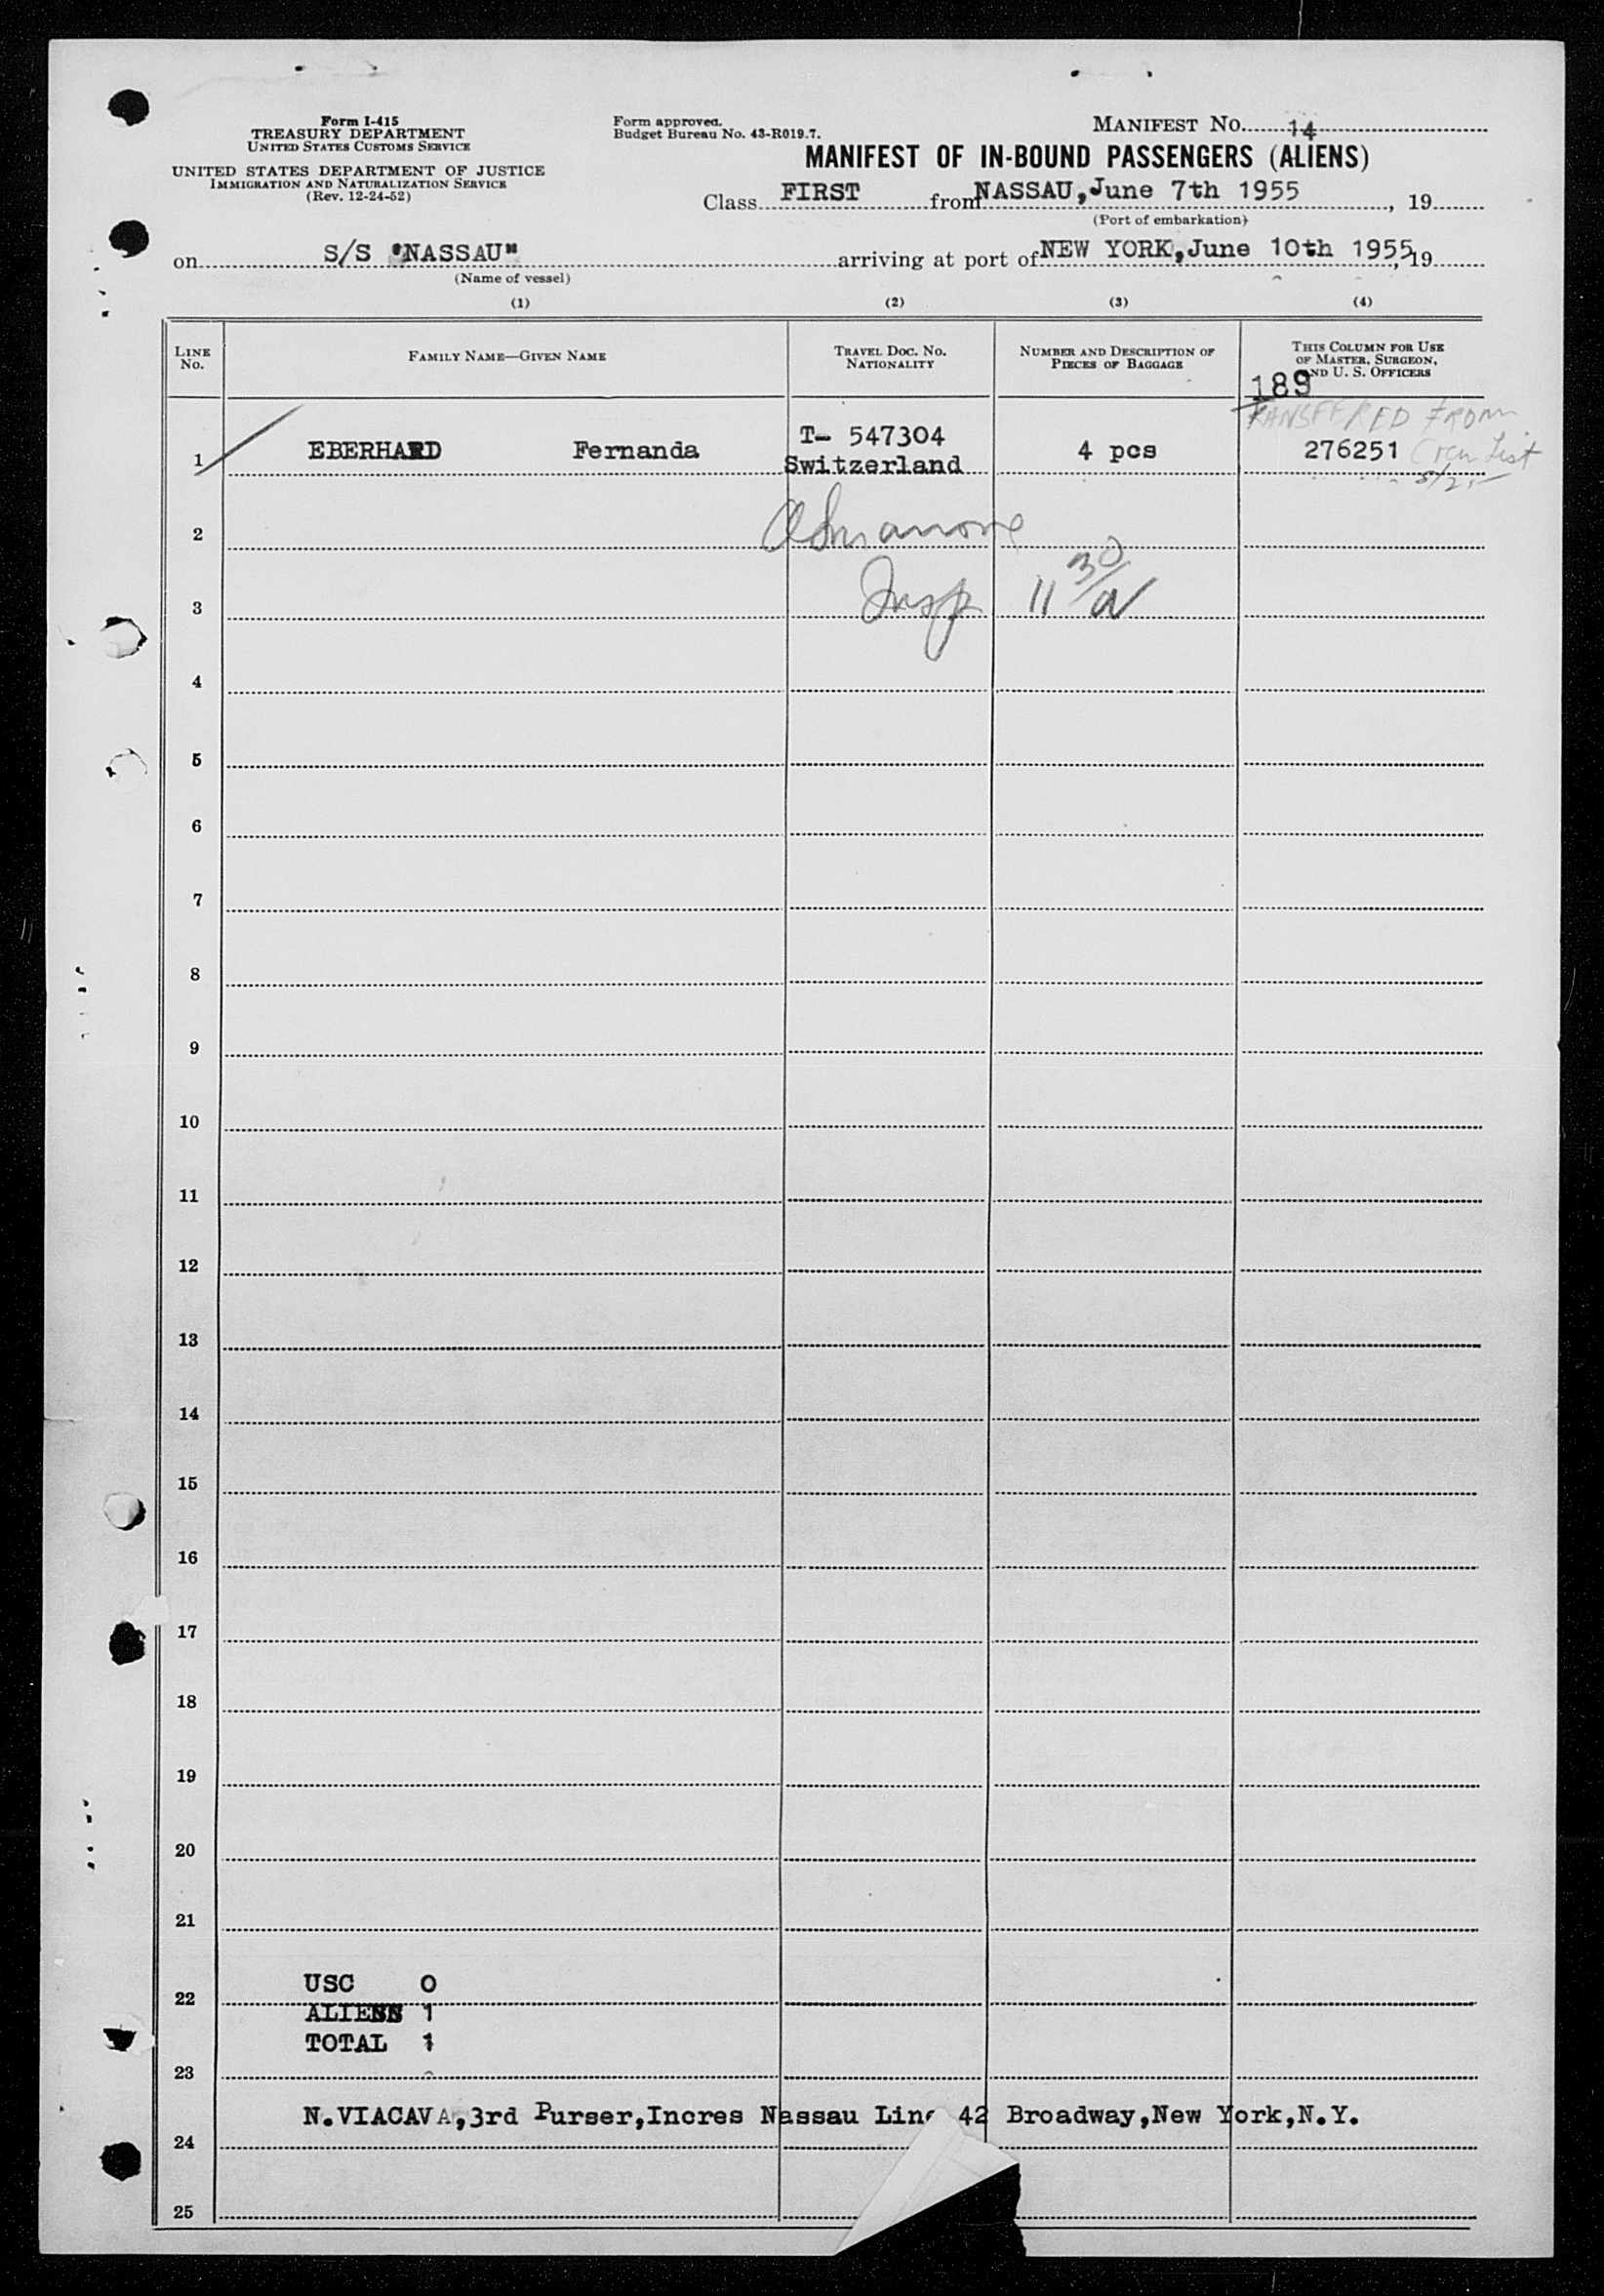 Form I-415
TREASURY DEPARTMENT
UNITED STATES CUSTOMS SERVICE
UNITED STATES DEPARTMENT OF JUSTICE
IMMIGRATION AND NATURALIZATION SERVICE
(Rev. 12-24-52)
Form approved.
Budget Bureau No. 43-R019.7.
MANIFEST NO. 14
MANIFEST OF IN-BOUND PASSENGERS (ALIENS)
Class FIRST from NASSAU, June 7th 1955, 19
(Port of embarkation)
on S/S "NASSAU" arriving at port of NEW YORK, June 10th 1955, 19
(Name of vessel)
(1) (2) (3) (4)
LINE No.
FAMILY NAME—GIVEN NAME
TRAVEL DOC. NO. NATIONALITY
NUMBER AND DESCRIPTION OF PIECES OF BAGGAGE
THIS COLUMN FOR USE OF MASTER, SURGEON, AND U. S. OFFICERS
189
TRANSFERED FROM
1 EBERHARD Fernanda T- 547304 Switzerland 4 pcs 276251 Crew List
2
3 Insp 11 30/a
4
5
6
7
8
9
10
11
12
13
14
15
16
17
18
19
20
21
USC 0
22
ALIENS 1
TOTAL 1
23
N.VIACAVA,3rd Purser,Incres Nassau Line 42 Broadway,New York,N.Y.
24
25